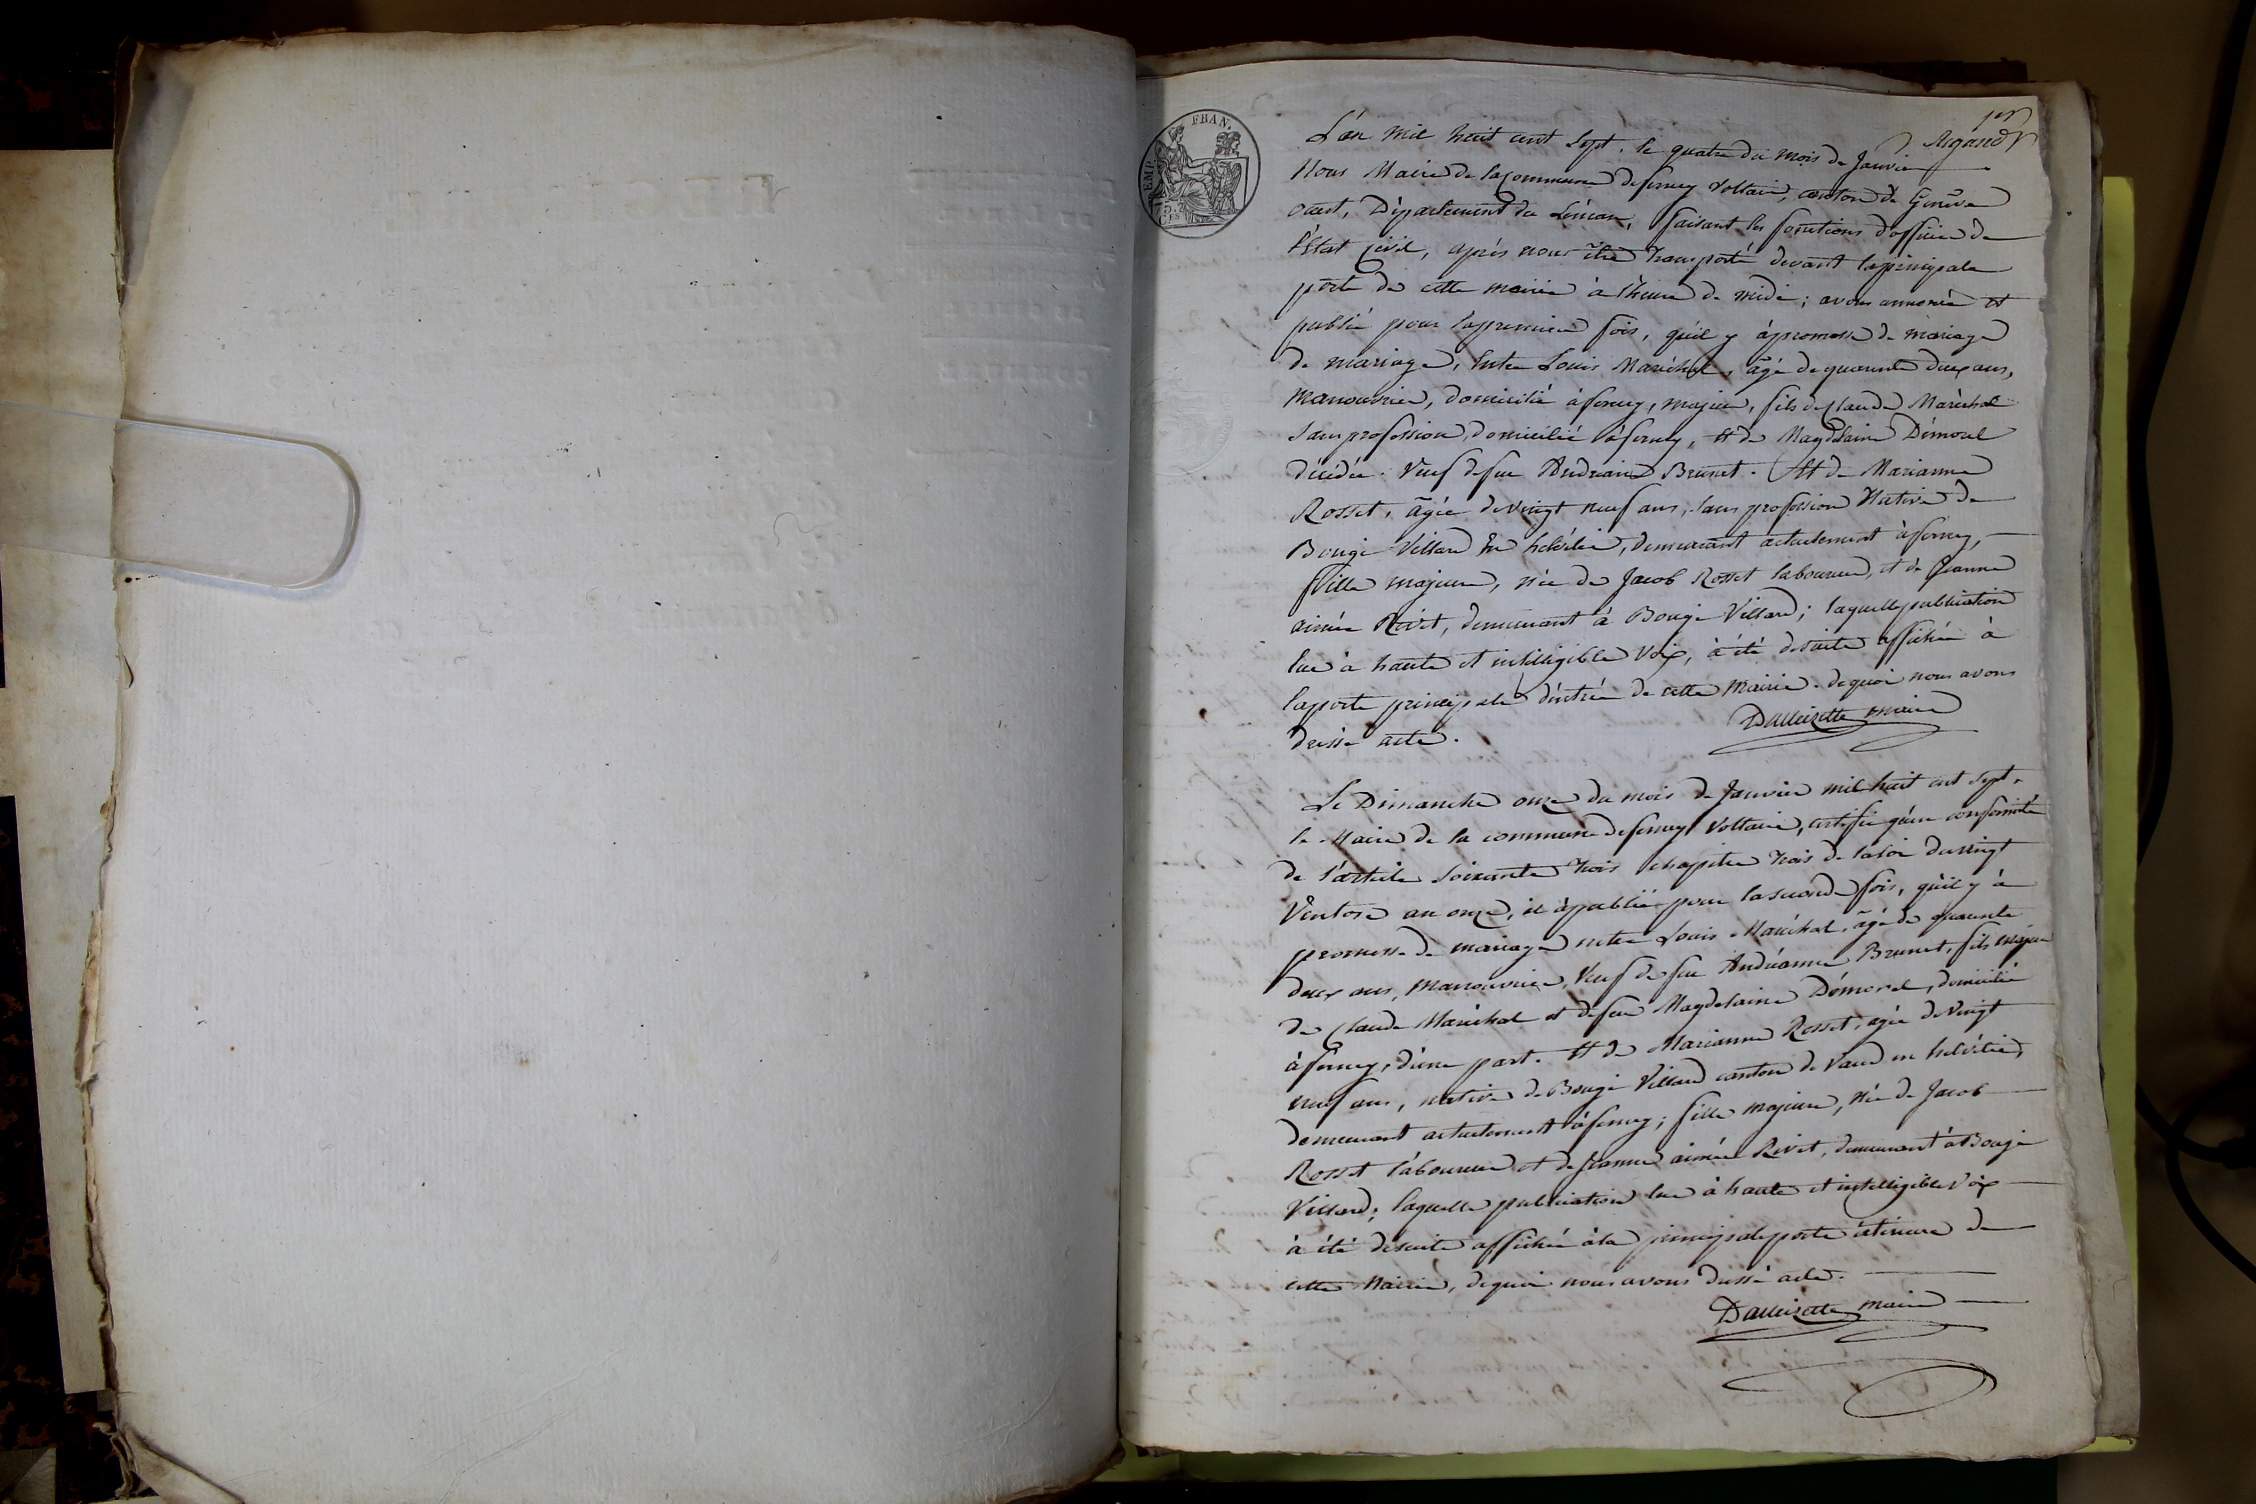 EMP. FRAN.
1er
Rigaud
L'an mil huit cent sept. le quatre du mois de Janvier
Nous Maire de la Commune de ferney Voltaire, canton de Genève
ouest, Département du Léman, faisant les fonctions d'officier de
l'état civil, après nous être transporté devant la principale
porte de cette mairie à l'heure de midi; avons annoncé et
publié pour la premiere fois, qu'il y à promesse de mariage
de mariage, entre Louis Maréchal, âgé de quarante deux ans,
manouvrier, domicilié à ferney, majeur, fils de Claude Maréchal
sans profession, domicilié à ferney, et de Magdelaine Démorel
décédée. Veuf de feue Andréanne Brunet. Et de Marianne
Rosset, âgée de vingt neuf ans, sans profession Native de
Bougi Villard En helvétie, demeurant actuelement à ferney,
fille majeure, née de Jacob Rosset laboureur, et de Jeanne
aimée Rivet, demeurant à Bougi Villard; laquelle publication
lue à haute et intelligible voix, à été desuite affichée à
la porte principale d'entrée de cette Mairie. de quoi nous avons
dréssé acte.
Dalleizette maire
Le Dimanche onze du mois de Janvier mil huit cent sept.
le Maire de la commune de ferney Voltaire, certifie qu'en conformité
de l'article soixante trois chapitre trois de la loi du vingt
Ventose an onze, il à publié pour la seconde fois, qu'il y à
promesse de mariage entre Louis Maréchal, âgé de quarante
deux ans, manouvrier, Veuf de feue Andréanne Brunet, fils majeur
de Claude Maréchal et de feue Magdelaine Démorel, domicilié
à ferney, d'une part. Et de Marianne Rosset, agée de vingt
neuf ans, native de Bougi Villard canton de Vaud en helvétie,
demeurant actuelement à ferney; fille majeure, née de Jacob
Rosset laboureur et de Jeanne aimée Rivet, demeurant à Bougi
Villard; laquelle publication lue à haute et intelligible voix
à été desuite affichée à la principale porte extérieure de
cette Mairie, de quoi nous avons dressé acte.
Dalleizette maire